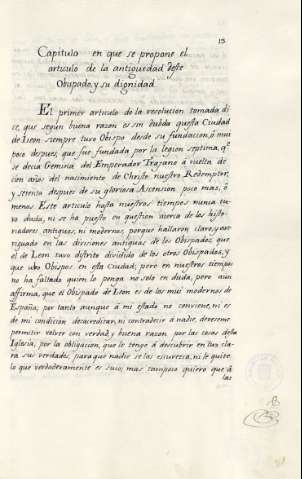 15
Capitulo en que se propone el
articulo de la antiguedad deste
Obispado, y su dignidad
El primer articulo de la resolucion tomada di
ce, que segun buena razon es sin dubda questa Ciudad
de Leon siempre tuvo Obispo desde su fundacion, ò mui
poco despues, que fue fundada por la legion septima, qe
se decia Gemina del Emperador Trajano à vuelta de
cien años del nacimiento de Christo nuestro Redemptor,
y setenta despues de su gloriosa Ascension poco mas, ò
menos. Este articulo hasta nuestros tiempos nunca tu
vo duda, ni se ha puesto en question acerca de los histo
riadores antiguos, ni modernos, porque hallaron claro, y ave
riguado en las divisiones antiguas de los Obispados, que
el de Leon tuvo distrito dividido de los otros Obispados, y
que ubo Obispos en esta Ciudad; pero en nuestros tiempos
no ha faltado quien lo ponga no solo en duda, pero aun
afirma, que el Obispado de Leon es de los mui modernos de
España; por tanto aunque à mi estado no conviene, ni es
de mi condicion desacreditar, ni contradecir à nadie, deveseme
permitir volver con verdad, y buena razon por las cosas desta
Iglesia, por la obligacion, que le tengo à descubrir en luz cla
ra sus verdades, para que nadie se las escurezca, ni le quite
lo que verdaderamente es suyo; mas tampoco quiero que à
las